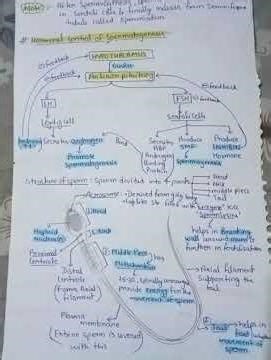 Note: After Spermiogenesis, sperm
in Sertoli Cells & finally release from Seminiferous
tubule called Spermiation
# Hormonal control of Spermatogenesis
HYPOTHALAMUS
⊖feedback
GnRH
⊖feedback
Anterior pituitary
⊖feedback
LH
FSH
⊖feedback
Leydig cell
Sertoli Cells
Androgen
Secretes androgen
Bind
Secretes
ABP
Produce
Produce
Inhibin
Hormone
Promote
spermatogenesis
Androgen
Binding
Protein
spermiogenesis
Structure of sperm: Sperm divided into 4 parts
Head
Neck
middle piece
Tail
Acrosome → Derived from golgi body
① Head
Haploid nucleus
② Neck
helps in
Proximal
Centriole
③ Middle Piece
Mitochondria
Axial filament
Supporting the
tail
Distal
Centriole
(forms Axial
filament)
provide energy for the
movement of sperm
④ Tail
helps in
movement of
sperm
Plasma
membrane
(Entire sperm is covered
with this)